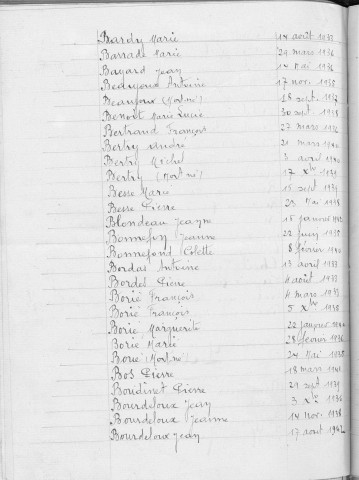 Bardy Marie 14 août 1933
Barrade Marie 29 mars 1936
Bayard Jean 14 Mai 1936
Beaujoux Antoine 17 nov. 1935
Beaujoux (Mort né) 18 sept. 1937
Benoît Marie Lucie 30 août 1938
Bertrand François 27 mars
Bertry André 21 mars 1940
Bertry Michel avril 1940
Bertry (Mort né) 17 Xbre
Besse Marie 15 sept
Besse Pierre 20 Mai 1938
Blondeau Jeanne 15 janvier 1942
Bonnefon Jeanne 22 juin 1935
Bonnefond Colette 8 février
Bordas Antoine 13 avril 1933
Bordel Pierre août 1933
Borie François 4 mars 1933
Borie François 5 Xbre
Borie Marguerite 22 janvier
Borie Marie 28 février 1936
Borie (Mort né) 24 Mai 1938
Bos Pierre 18 mars
Boudinet Pierre 21 sept
Bourdeloux Jean 3 Xbre 1936
Bourdeloux Jeanne 14 nov. 1938
Bourdeloux Jean 17 août 1942